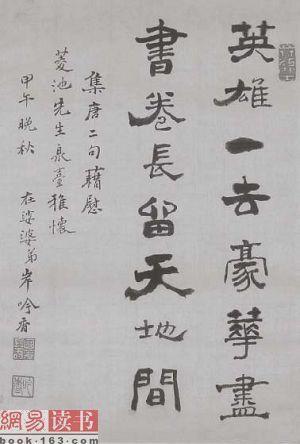 英雄一去豪華盡
書卷長留天地間
集唐二句藉慰
菱池先生泉臺雅懷
甲午晚秋
在婆婆弟岸吟香
網易读书
book·163·com